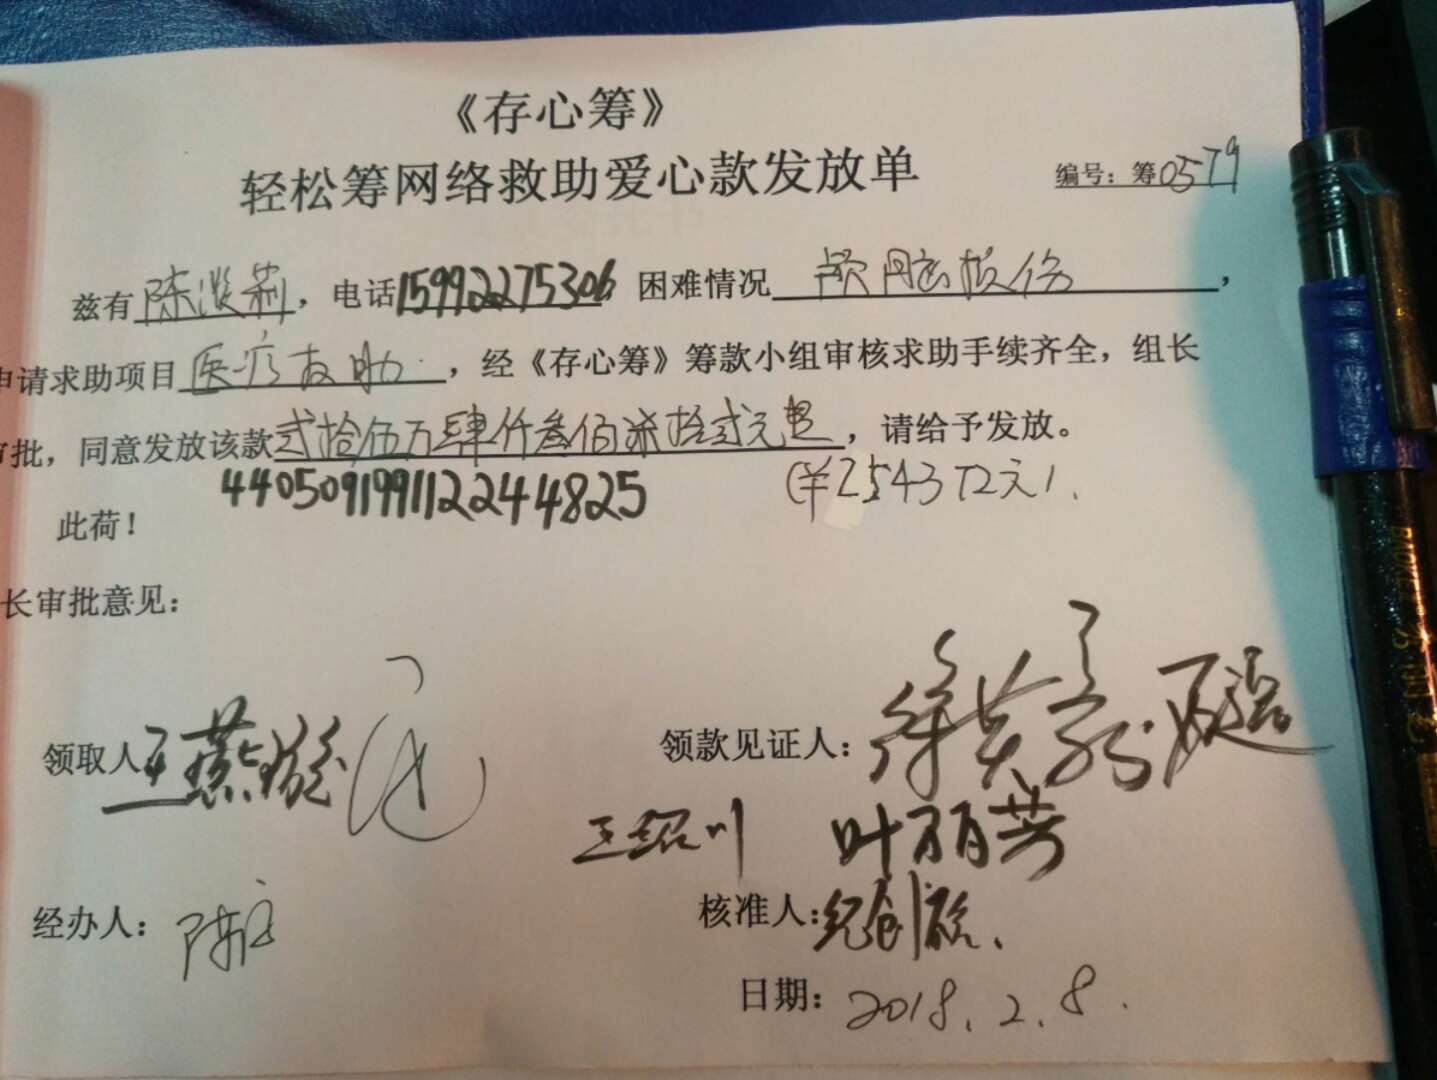 《存心筹》
轻松筹网络救助爱心款发放单
编号：筹0579
兹有陈淡莉，电话15992275306 困难情况
申请求助项目医疗救助，经《存心筹》筹款小组审核求助手续齐全，组长
审批，同意发放该款贰拾伍万肆仟叁佰柒拾贰元整，请给予发放。
440509199112244825 (¥254372元)．
此荷！
长审批意见：
领取人王燕璇
领款见证人：
王绍川 叶丽芳
经办人：陈
核准人：纪创
日期：2018.2.8.